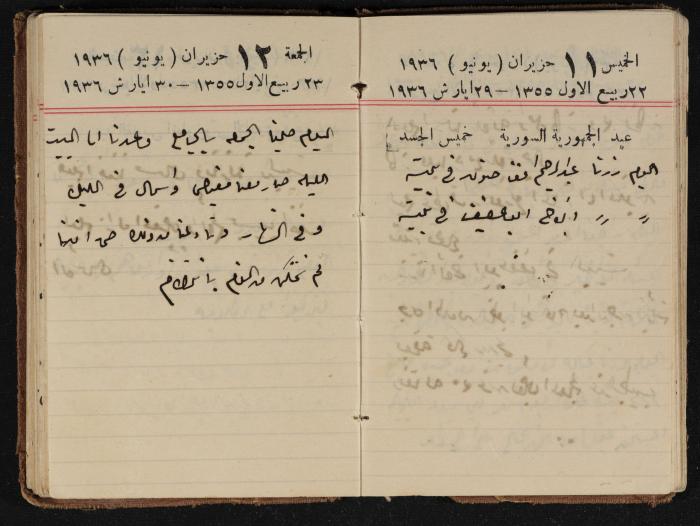 الخميس ١١ حزيران ( يونيو ) ١٩٣٦
٢٢ ربيع الاول ١٣٥٥ – ٢٩ ايار ش ١٩٣٦
عيد الجمهورية السورية خميس الجسد
اليوم زرنا عبد الرحيم افندي في بيته
〃 〃 الاخ في بيته
الجمعة ١٢ حزيران ( يونيو ) ١٩٣٦
٢٣ ربيع الاول ١٣٥٥ – ٣٠ ايار ش ١٩٣٦
اليوم صلينا الجمعه بالجامع وعدنا الى البيت
الليله صار معنا مغيص واسهال في الليل
وفي النهار حتى اننا
لم نتمكن من النوم بانتظام